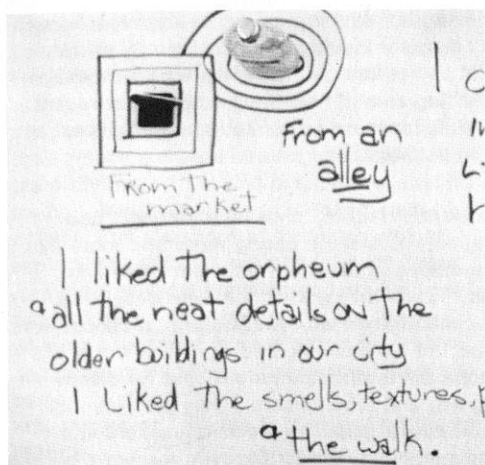 From The
market
From an
alley
I liked The orpheum
& all the neat details on The
older buildings in our city
I Liked The smells, textures,
& the walk.